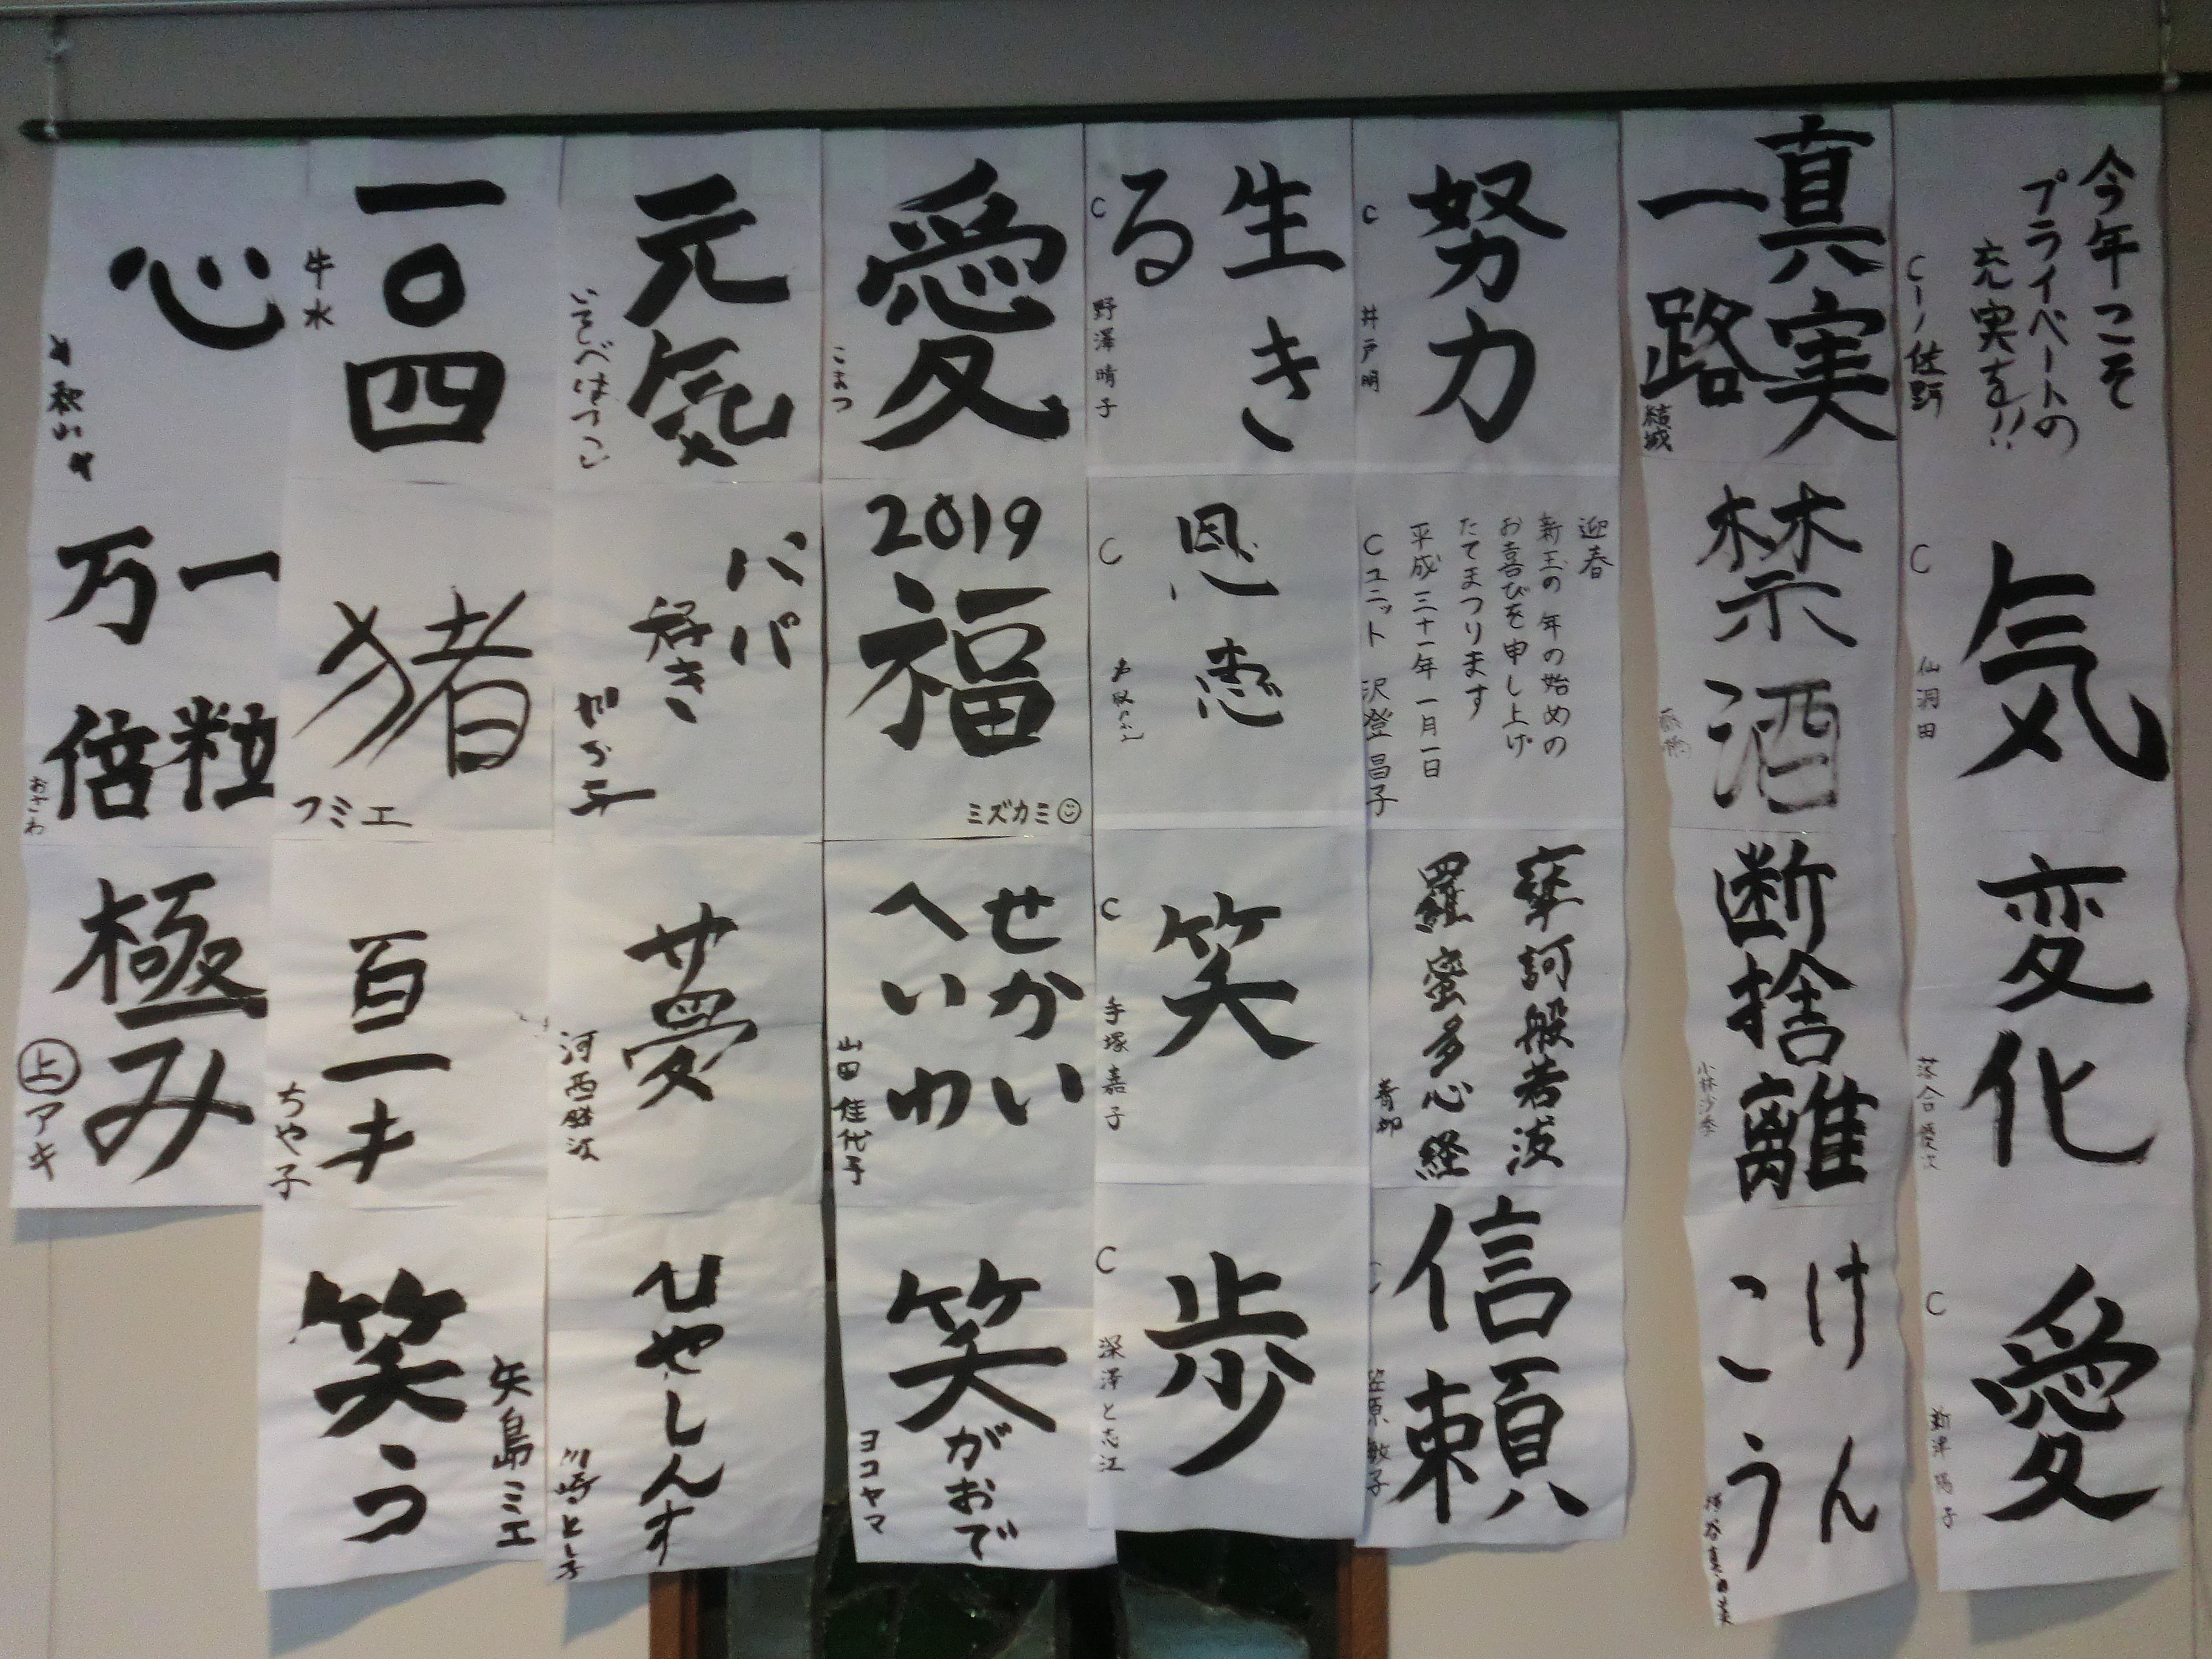 今年こそ
プライベートの
充実を!!
Cーノ佐野
C
気
仙洞田
変化
落合優次
C
愛
新津陽子
真実
一路
結城
禁酒
断捨離
小林沙季
けん
こう
C
努力
井戸明
迎春
新玉の年の始めの
お喜びを申し上げ
たてまつります
平成三十一年一月一日
Cユニット 沢登昌子
摩訶般若波
羅蜜多心経
信頼
笠原敏子
生き
る
C
野澤晴子
C
恩恵
C
笑
手塚嘉子
C
歩
深澤と志江
愛
こまつ
2019
福
ミズカミ
せかい
へいわ
山田佳代子
笑がおで
ヨコヤマ
元気
いそべはつこ
パパ
好き
夢
河西
ひやしんす
川崎とし子
一〇四
牛水
猪
フミエ
百一才
ちや子
笑う
矢島ミエ
心
秋山
一粒
万倍
おざわ
極み
上アキ